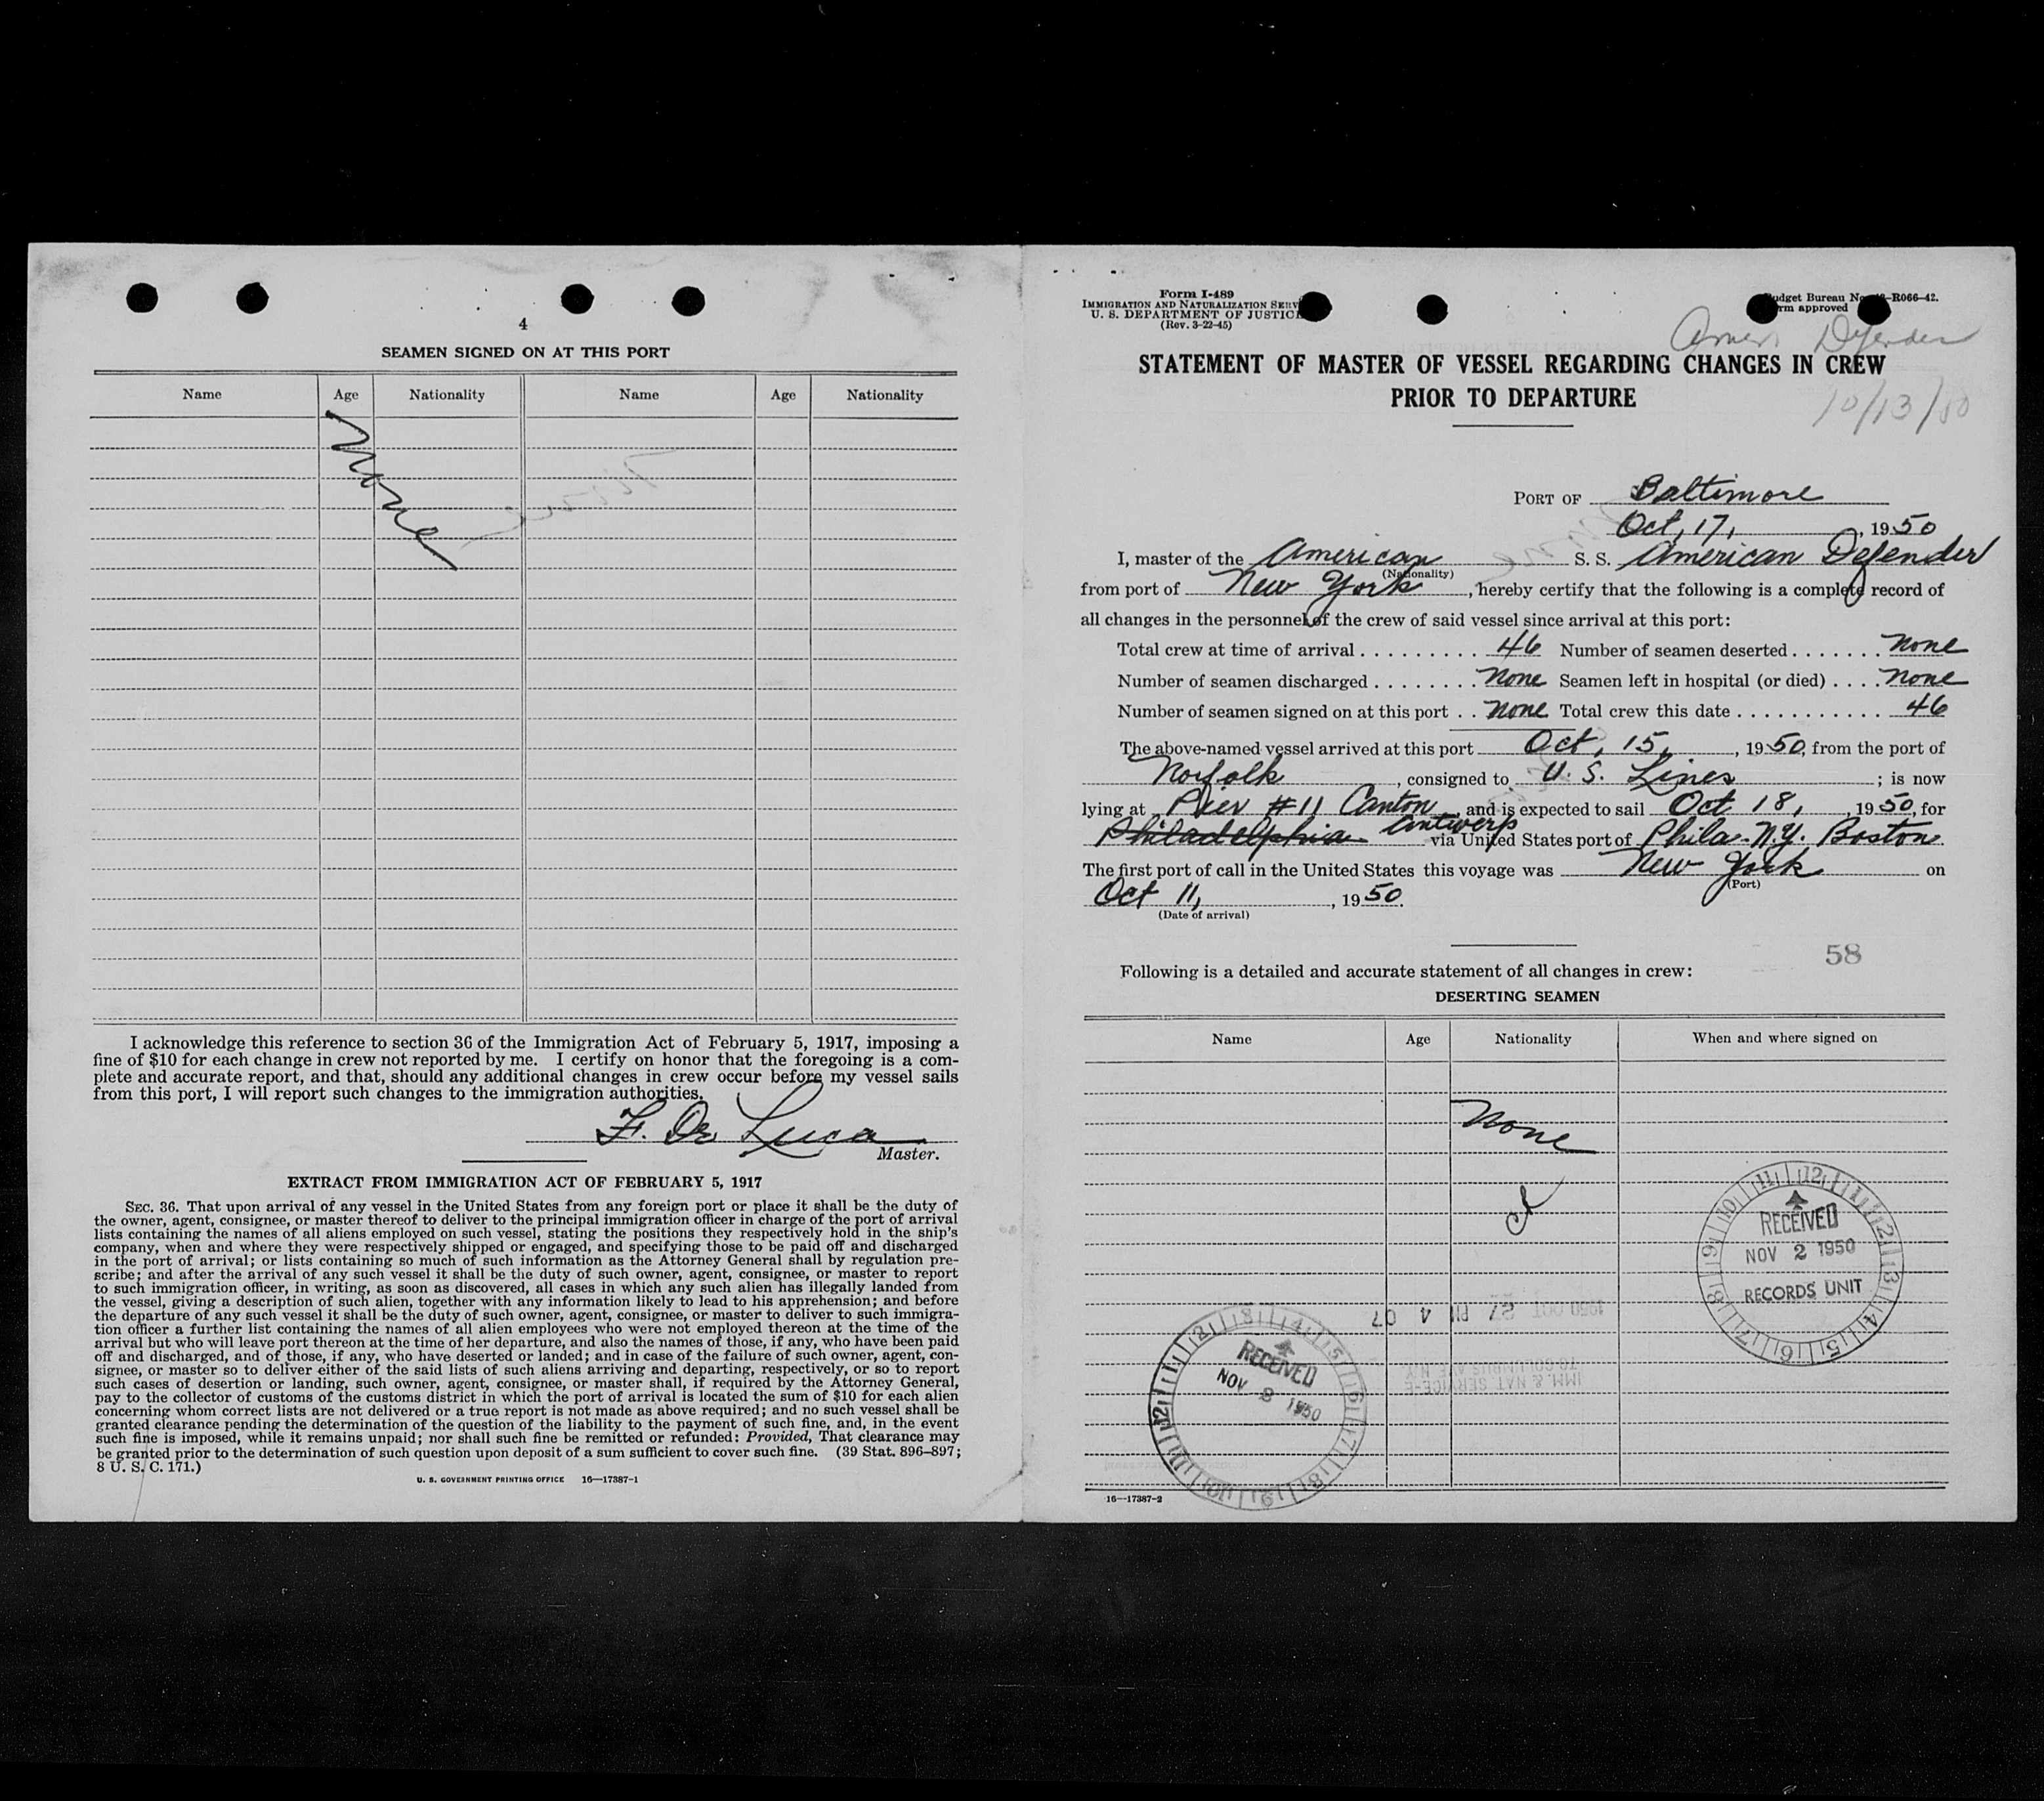 4
SEAMEN SIGNED ON AT THIS PORT
Name Age Nationality Name Age Nationality
None
I acknowledge this reference to section 36 of the Immigration Act of February 5, 1917, imposing a
fine of $10 for each change in crew not reported by me. I certify on honor that the foregoing is a com-
plete and accurate report, and that, should any additional changes in crew occur before my vessel sails
from this port, I will report such changes to the immigration authorities.
F. De Luca
Master.
EXTRACT FROM IMMIGRATION ACT OF FEBRUARY 5, 1917
SEC. 36. That upon arrival of any vessel in the United States from any foreign port or place it shall be the duty of
the owner, agent, consignee, or master thereof to deliver to the principal immigration officer in charge of the port of arrival
lists containing the names of all aliens employed on such vessel, stating the positions they respectively hold in the ship's
company, when and where they were respectively shipped or engaged, and specifying those to be paid off and discharged
in the port of arrival; or lists containing so much of such information as the Attorney General shall by regulation pre-
scribe; and after the arrival of any such vessel it shall be the duty of such owner, agent, consignee, or master to report
to such immigration officer, in writing, as soon as discovered, all cases in which any such alien has illegally landed from
the vessel, giving a description of such alien, together with any information likely to lead to his apprehension; and before
the departure of any such vessel it shall be the duty of such owner, agent, consignee, or master to deliver to such immigra-
tion officer a further list containing the names of all alien employees who were not employed thereon at the time of the
arrival but who will leave port thereon at the time of her departure, and also the names of those, if any, who have been paid
off and discharged, and of those, if any, who have deserted or landed; and in case of the failure of such owner, agent, con-
signee, or master so to deliver either of the said lists of such aliens arriving and departing, respectively, or so to report
such cases of desertion or landing, such owner, agent, consignee, or master shall, if required by the Attorney General,
pay to the collector of customs of the customs district in which the port of arrival is located the sum of $10 for each alien
concerning whom correct lists are not delivered or a true report is not made as above required; and no such vessel shall be
granted clearance pending the determination of the question of the liability to the payment of such fine, and, in the event
such fine is imposed, while it remains unpaid; nor shall such fine be remitted or refunded: Provided, That clearance may
be granted prior to the determination of such question upon deposit of a sum sufficient to cover such fine. (39 Stat. 896–897;
8 U. S. C. 171.)
U. S. GOVERNMENT PRINTING OFFICE 16—17387-1
Form I-489
IMMIGRATION AND NATURALIZATION SERV
U. S. DEPARTMENT OF JUSTICE
(Rev. 3-22-45)
udget Bureau No. R066-42.
rm approved
Amer. Defender
10/13/50
STATEMENT OF MASTER OF VESSEL REGARDING CHANGES IN CREW
PRIOR TO DEPARTURE
PORT OF Baltimore
Oct, 17, 1950
I, master of the American S. S. American Defender
(Nationality)
from port of New York, hereby certify that the following is a complete record of
all changes in the personnel of the crew of said vessel since arrival at this port:
Total crew at time of arrival . . . . . . . . . . 46 Number of seamen deserted . . . . . . . none
Number of seamen discharged . . . . . . . . none Seamen left in hospital (or died) . . . . none
Number of seamen signed on at this port . . none Total crew this date . . . . . . . . . . . . 46
The above-named vessel arrived at this port Oct, 15, 1950, from the port of
Norfolk, consigned to U. S. Lines; is now
lying at Pier #11 Canton, and is expected to sail Oct 18, 1950, for
Philadelphia Antwerp via United States port of Phila. N.Y. Boston
The first port of call in the United States this voyage was New York on
(Port)
Oct 11, 1950.
(Date of arrival)
58
Following is a detailed and accurate statement of all changes in crew:
DESERTING SEAMEN
Name Age Nationality When and where signed on
None
RECEIVED
NOV 2 1950
RECORDS UNIT
1950 OCT 27 PM 4 07
IMM. & NAT SERVICE
RECEIVED
NOV 1950
16—17387-2